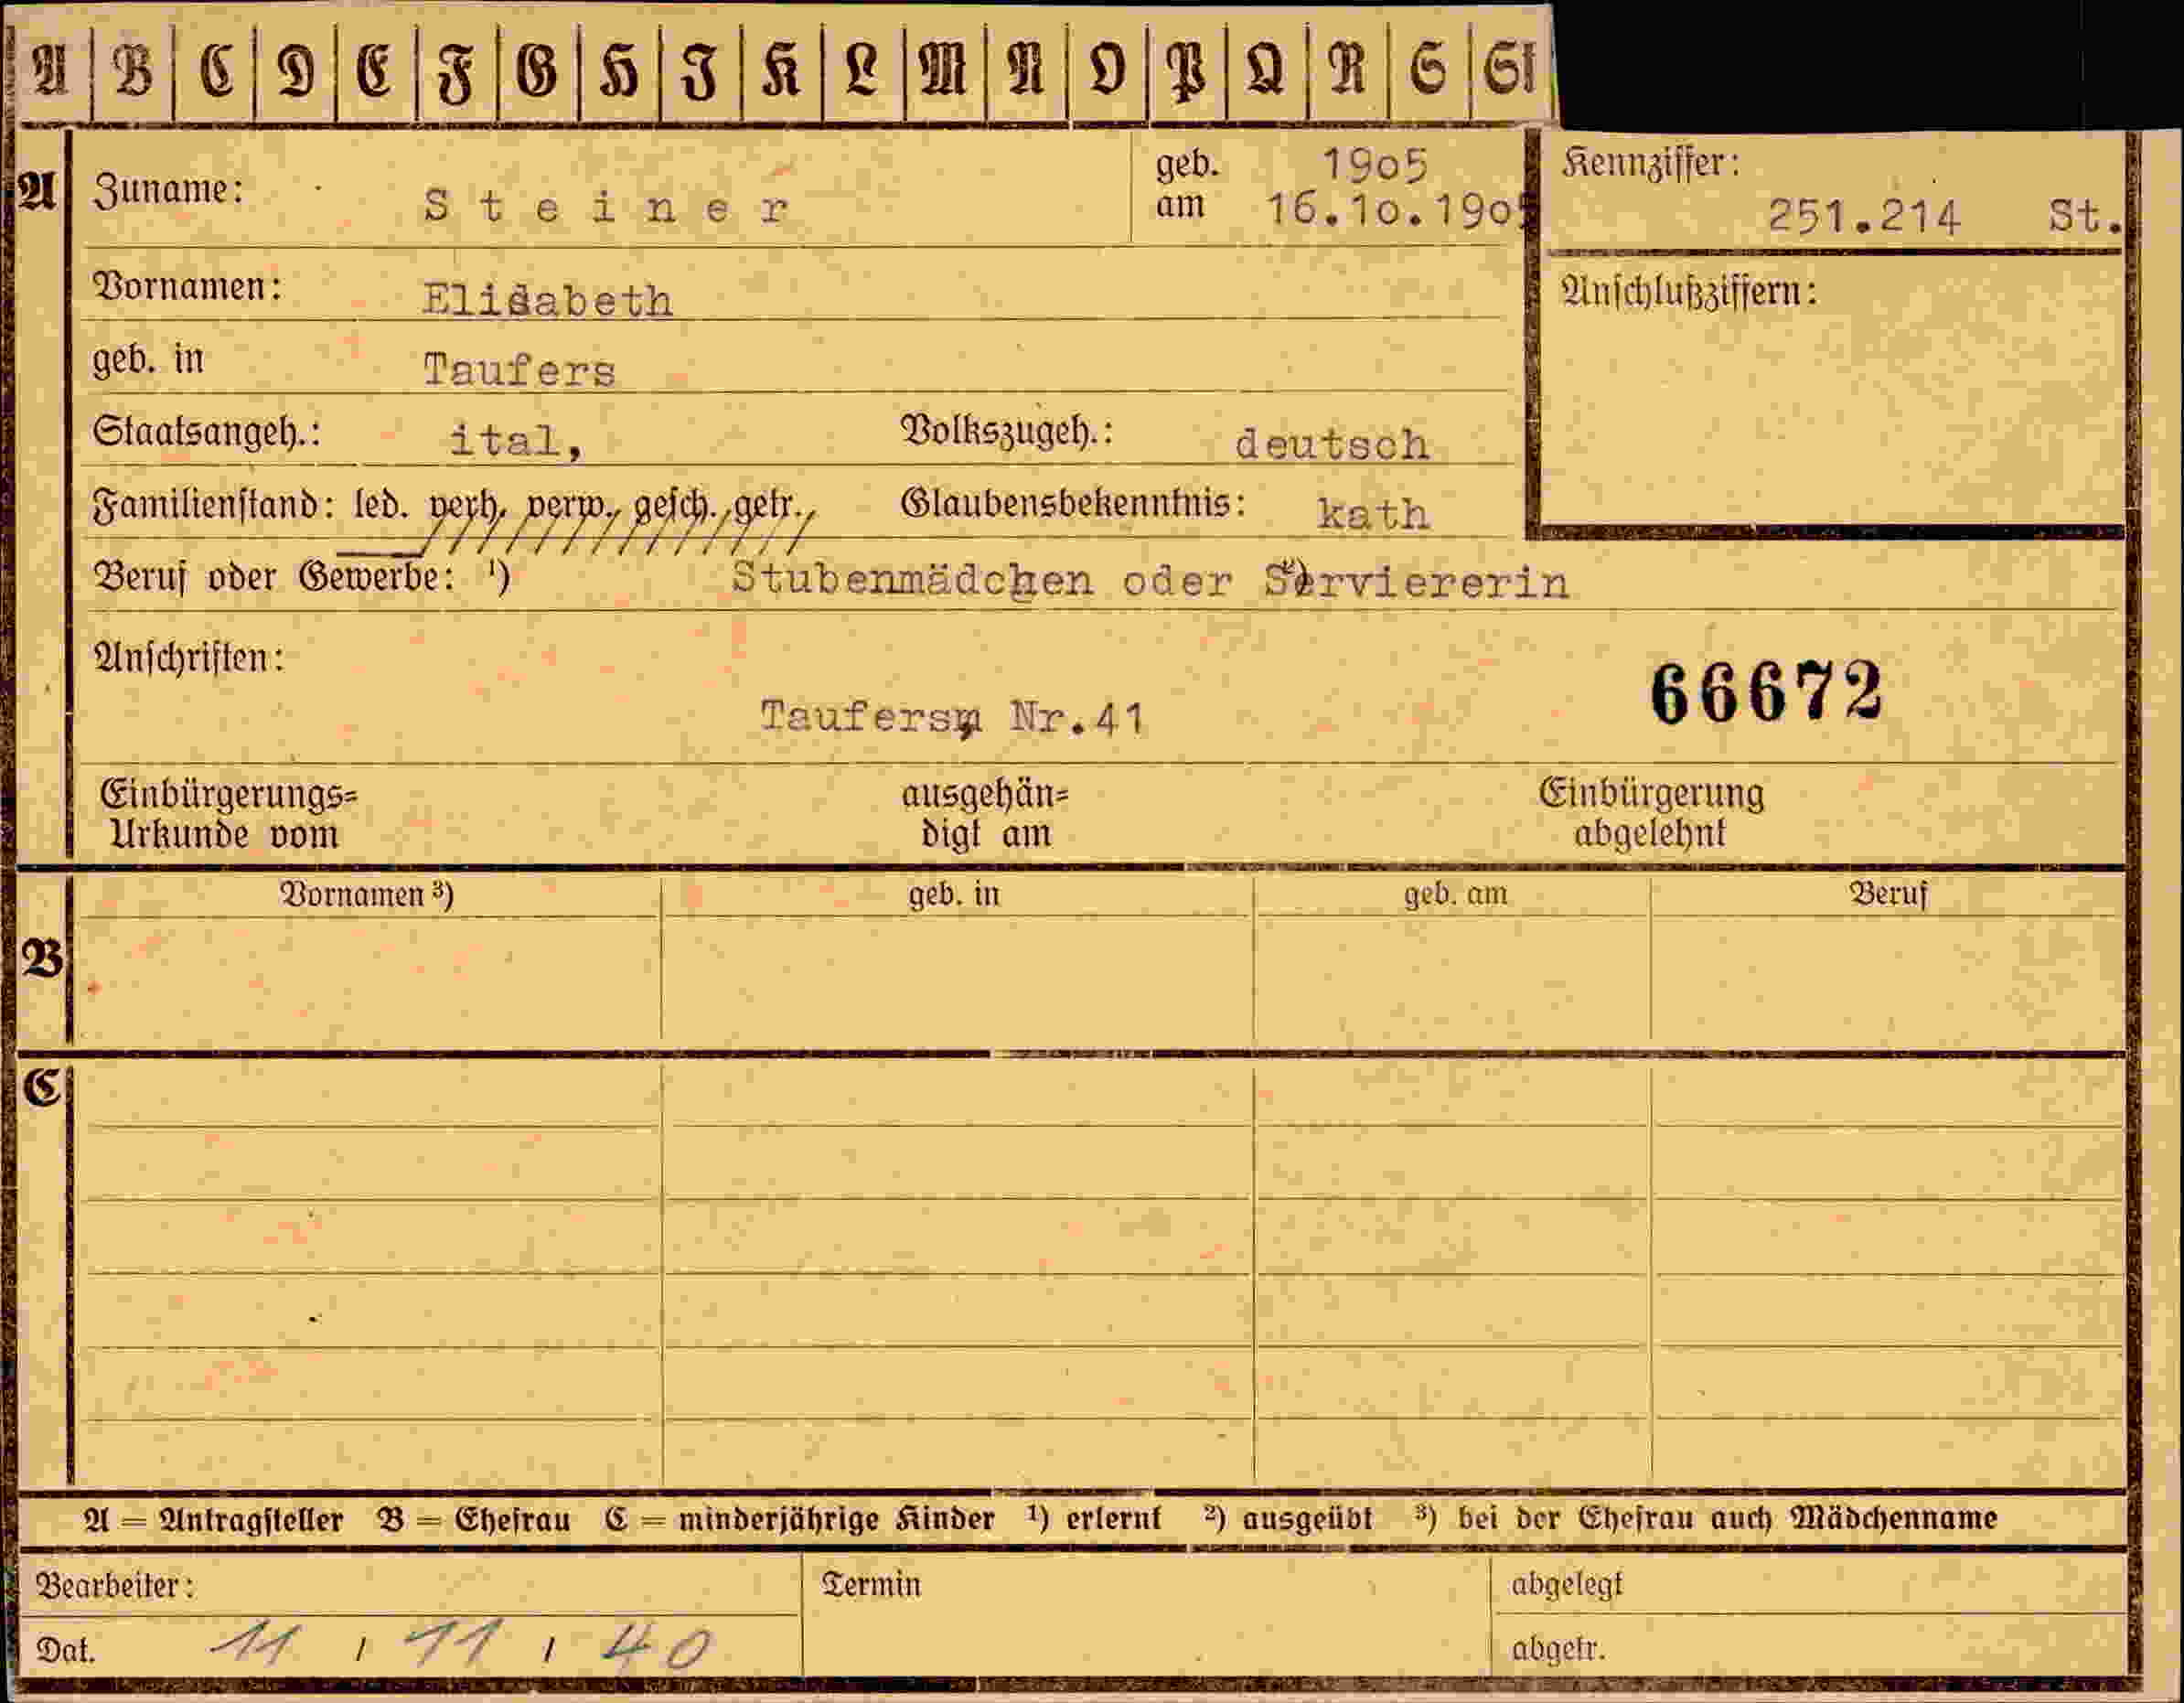 A B C D E F G H J K L M N O P Q R S St
A Zuname: Steiner geb. am 1905 16.10.1905 Kennziffer: 251.214 St.
Vornamen: Elisabeth Anschlußziffern:
geb. in Taufers
Staatsangeh.: ital, Volkszugeh.: deutsch
Familienstand: led. verh. verw., gesch., getr., Glaubensbekenntnis: kath
Beruf oder Gewerbe: ¹) Stubenmädchen oder Serviererin
Anschriften:
66672
Taufers, Nr.41
Einbürgerungs= ausgehän= Einbürgerung
Urkunde vom digt am abgelehnt
Vornamen ³) geb. in geb. am Beruf
B
C
A = Antragsteller B = Ehefrau C = minderjährige Kinder ¹) erlernt ²) ausgeübt ³) bei der Ehefrau auch Mädchenname
Bearbeiter: Termin abgelegt
Dat. 11 / 11 / 40 abgetr.